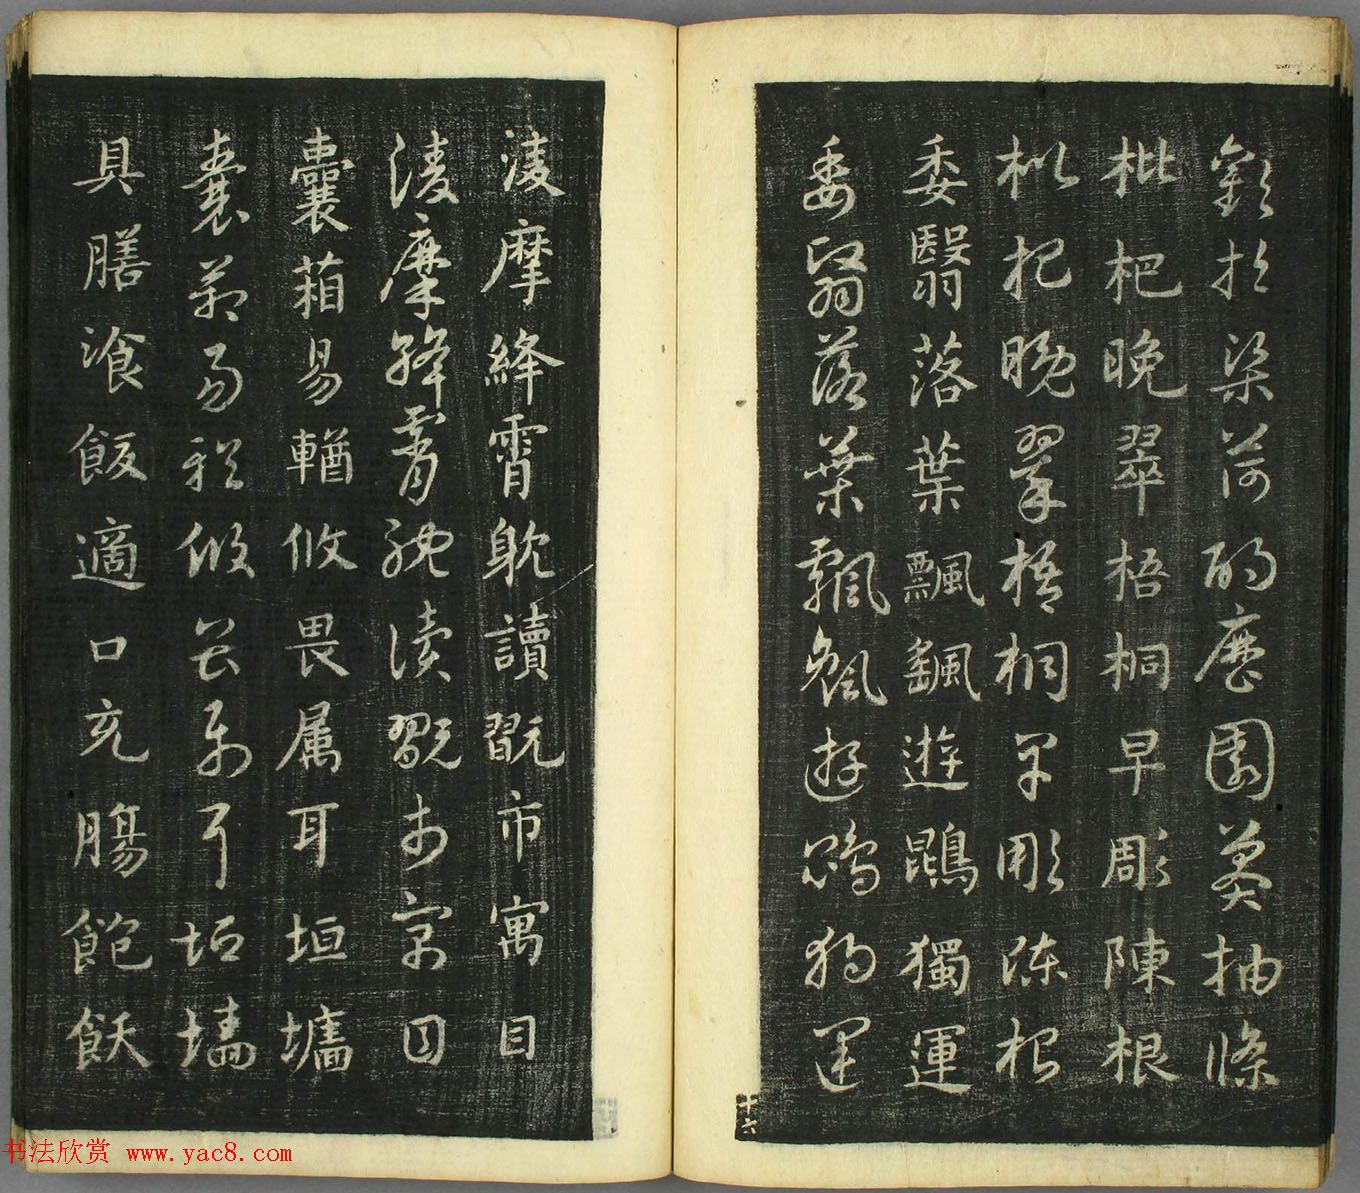 歡招渠荷的歷園莽抽條
枇杷晚翠梧桐早彫陳根
枇杷晚翠梧桐早彫陳根
委翳落葉飄颻遊鵾獨運
委翳落葉飄颻遊鵾獨運
十六
淩摩絳霄躭讀翫市寓目
淩摩絳霄躭讀翫市寓目
囊葙易輶攸畏属耳垣墻
囊葙易輶攸畏属耳垣墻
具膳湌飯適口充腸飽飫
书法欣赏 www.yac8.com